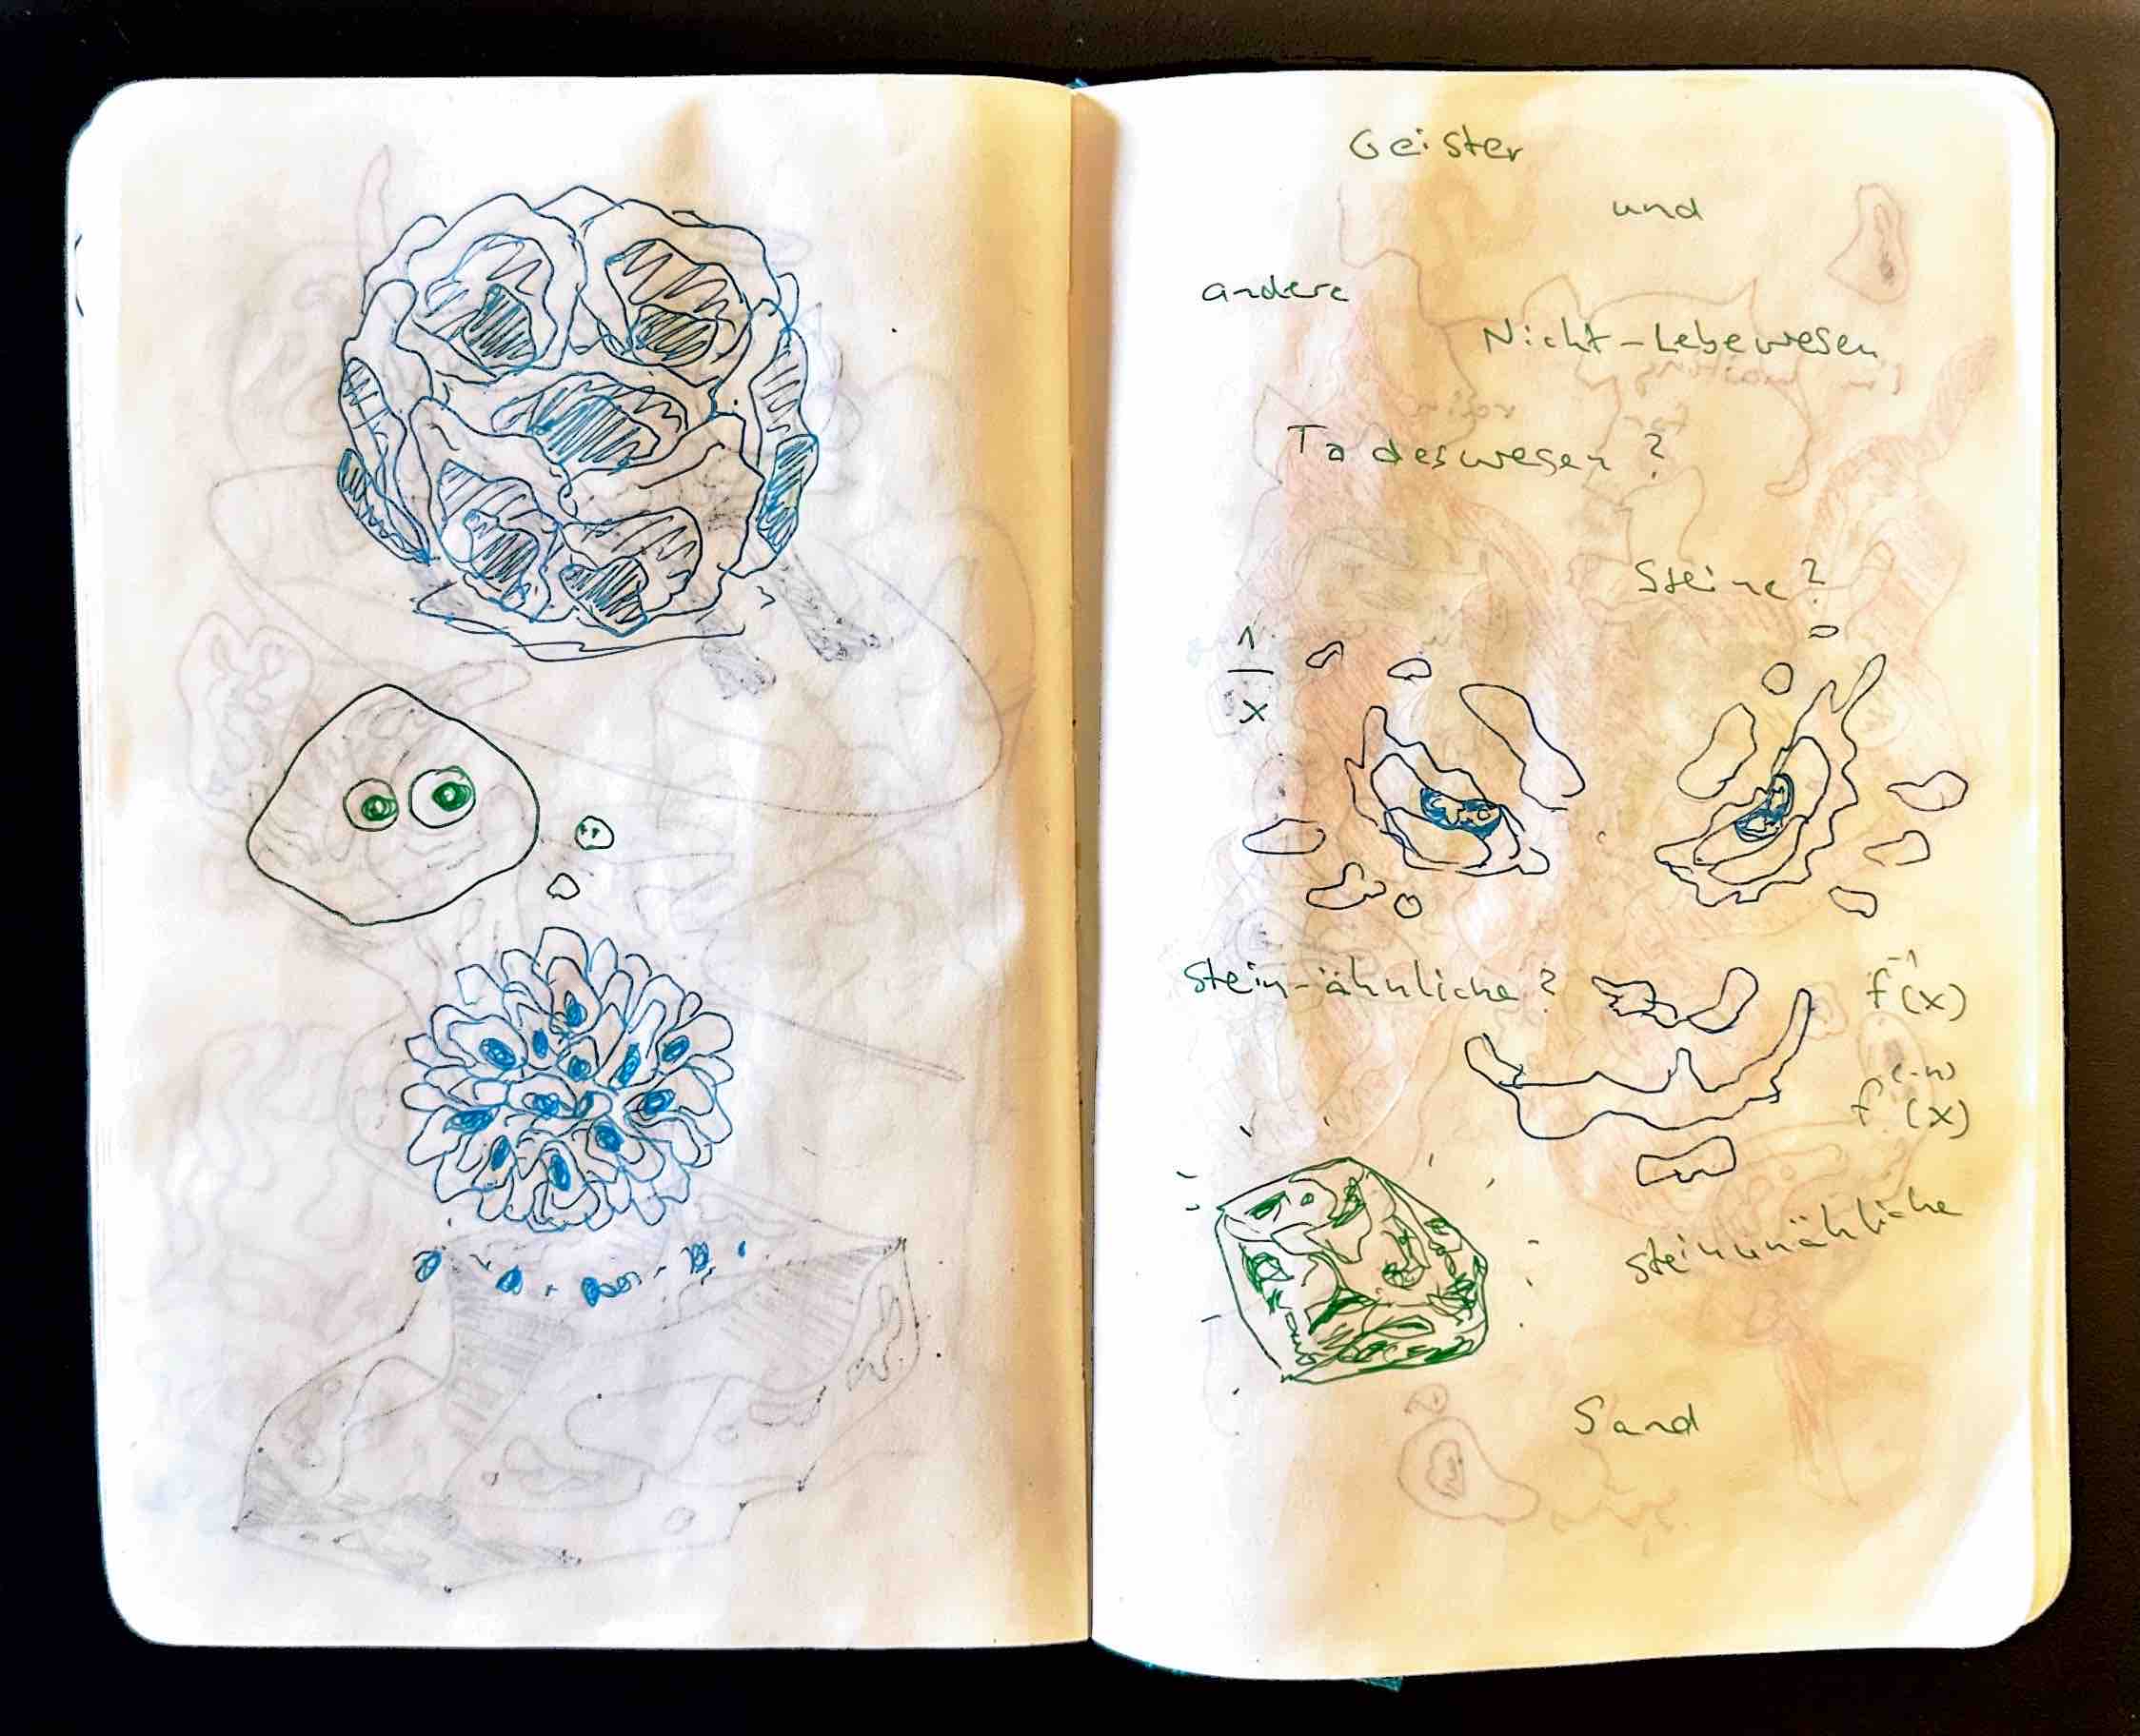 Geister
und
andere
Nicht-Lebewesen
Todeswesen?
Steine?
1
x
stein-ähnliche?
f⁻¹(x)
f⁽⁻ⁿ⁾(x)
steinunähliche
Sand